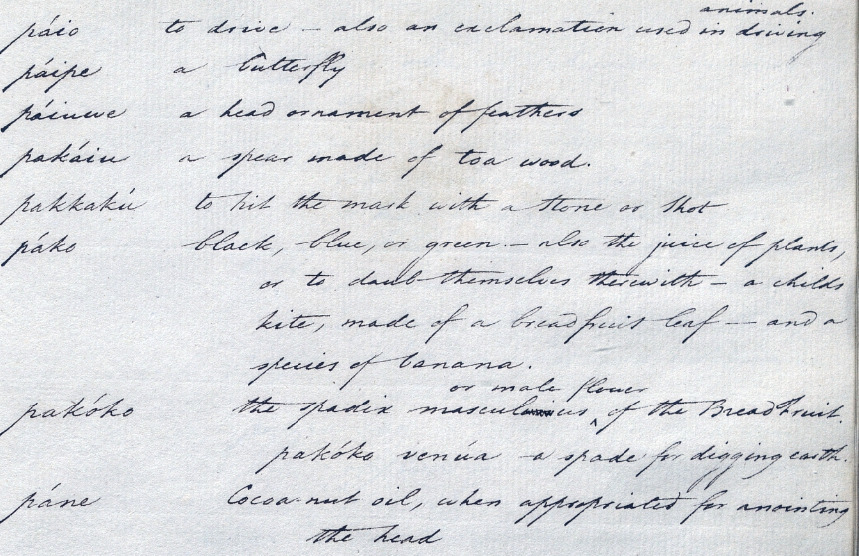 animals.
páio to drive – also an exclamation used in driving
páipe a butterfly
páiuwe a head ornament of feathers
pakáiu a spear made of toa wood.
pakkakú to hit the mark with a stone or shot
páko black, blue, or green – also the juice of plants,
or to daub themselves therewith – a childs
kite, made of a breadfruit leaf – and a
species of banana.
or male flower
pakóko the spadix masculus ‸ of the Breadfruit.
pakóko venúa a spade for digging earth.
páne Cocoa-nut oil, when appropriated for anointing
the head